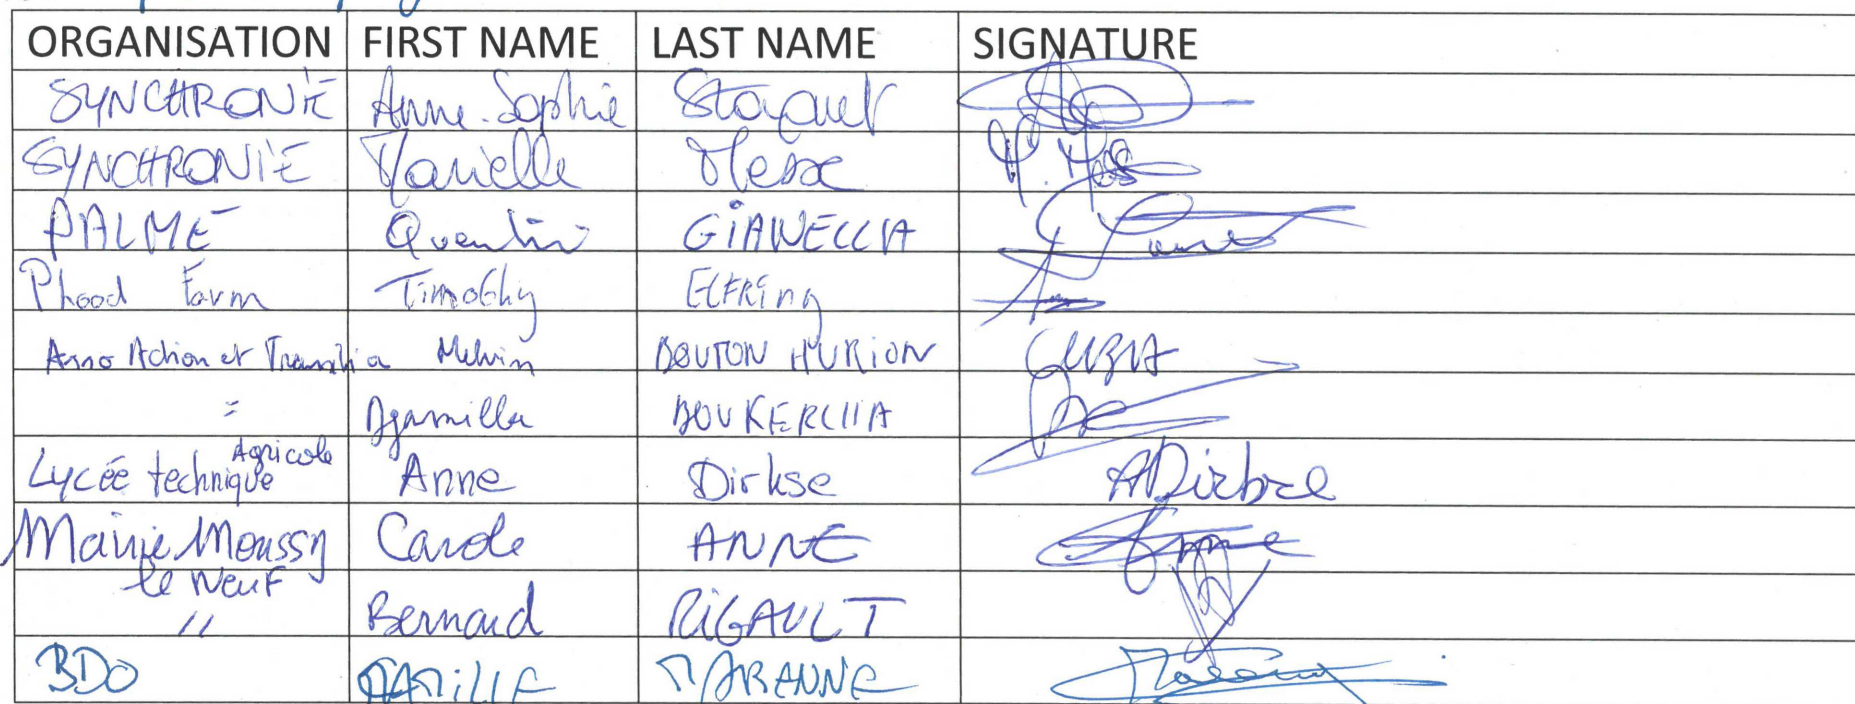 ORGANISATION FIRST NAME LAST NAME SIGNATURE
SYNCHRONIE Anne-Sophie Stoquet
SYNCHRONIE Marielle Messe
PALME Quentin GIANNELLIA
Phood Farm Timothy ELFRING
Asso Action et Transitia Melvin BOUTON HURION
= Djamilla BOUKERCHA
Lycée technique Agricole Anne Dirkse ADirkse
Mairie Moussy Carole ANNE Anne
le Neuf
" Bernard RIGAULT
BDO